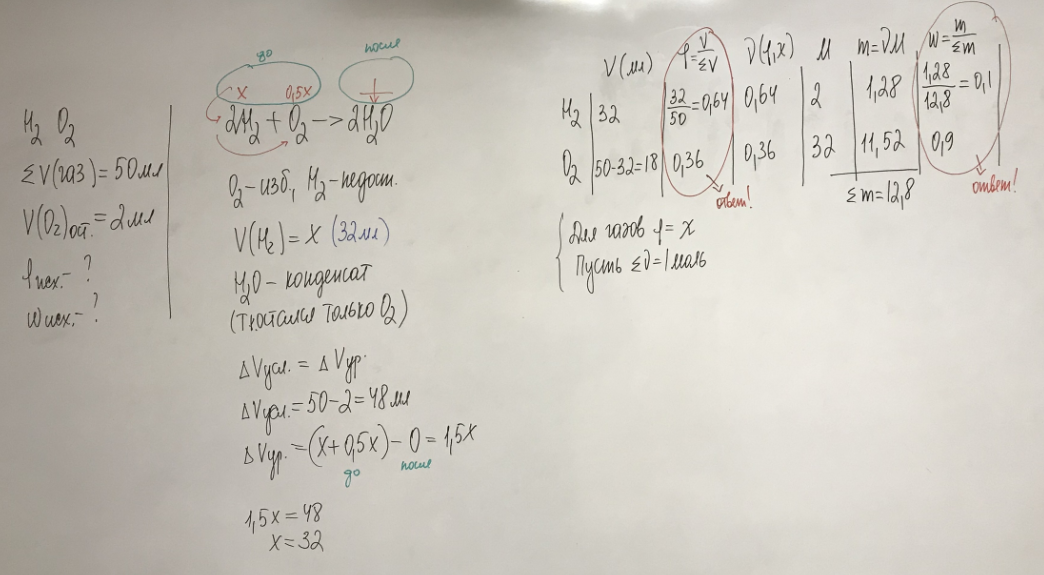 H₂ O₂
ΣV(газ)=50мл
V(O₂)ост.=2мл
φисх.-?
wисх.-?
до
после
x 0,5x
2H₂+O₂->2H₂O
O₂-изб., H₂-недост.
V(H₂)=x (32мл)
H₂O-конденсат
(т.к остался только O₂)
ΔVусл.=ΔVур.
ΔVусл.=50-2=48мл
ΔVур.=(x+0,5x)-0=1,5x
до после
1,5x=48
x=32
V(мл) φ=V/ΣV ν(φ,x) M m=νM w=m/Σm
H₂ 32 32/50=0,64 0,64 2 1,28 1,28/12,8=0,1
O₂ 50-32=18 0,36 0,36 32 11,52 0,9
ответ!
Σm=12,8
ответ!
Для газов φ=x
Пусть Σν=1моль